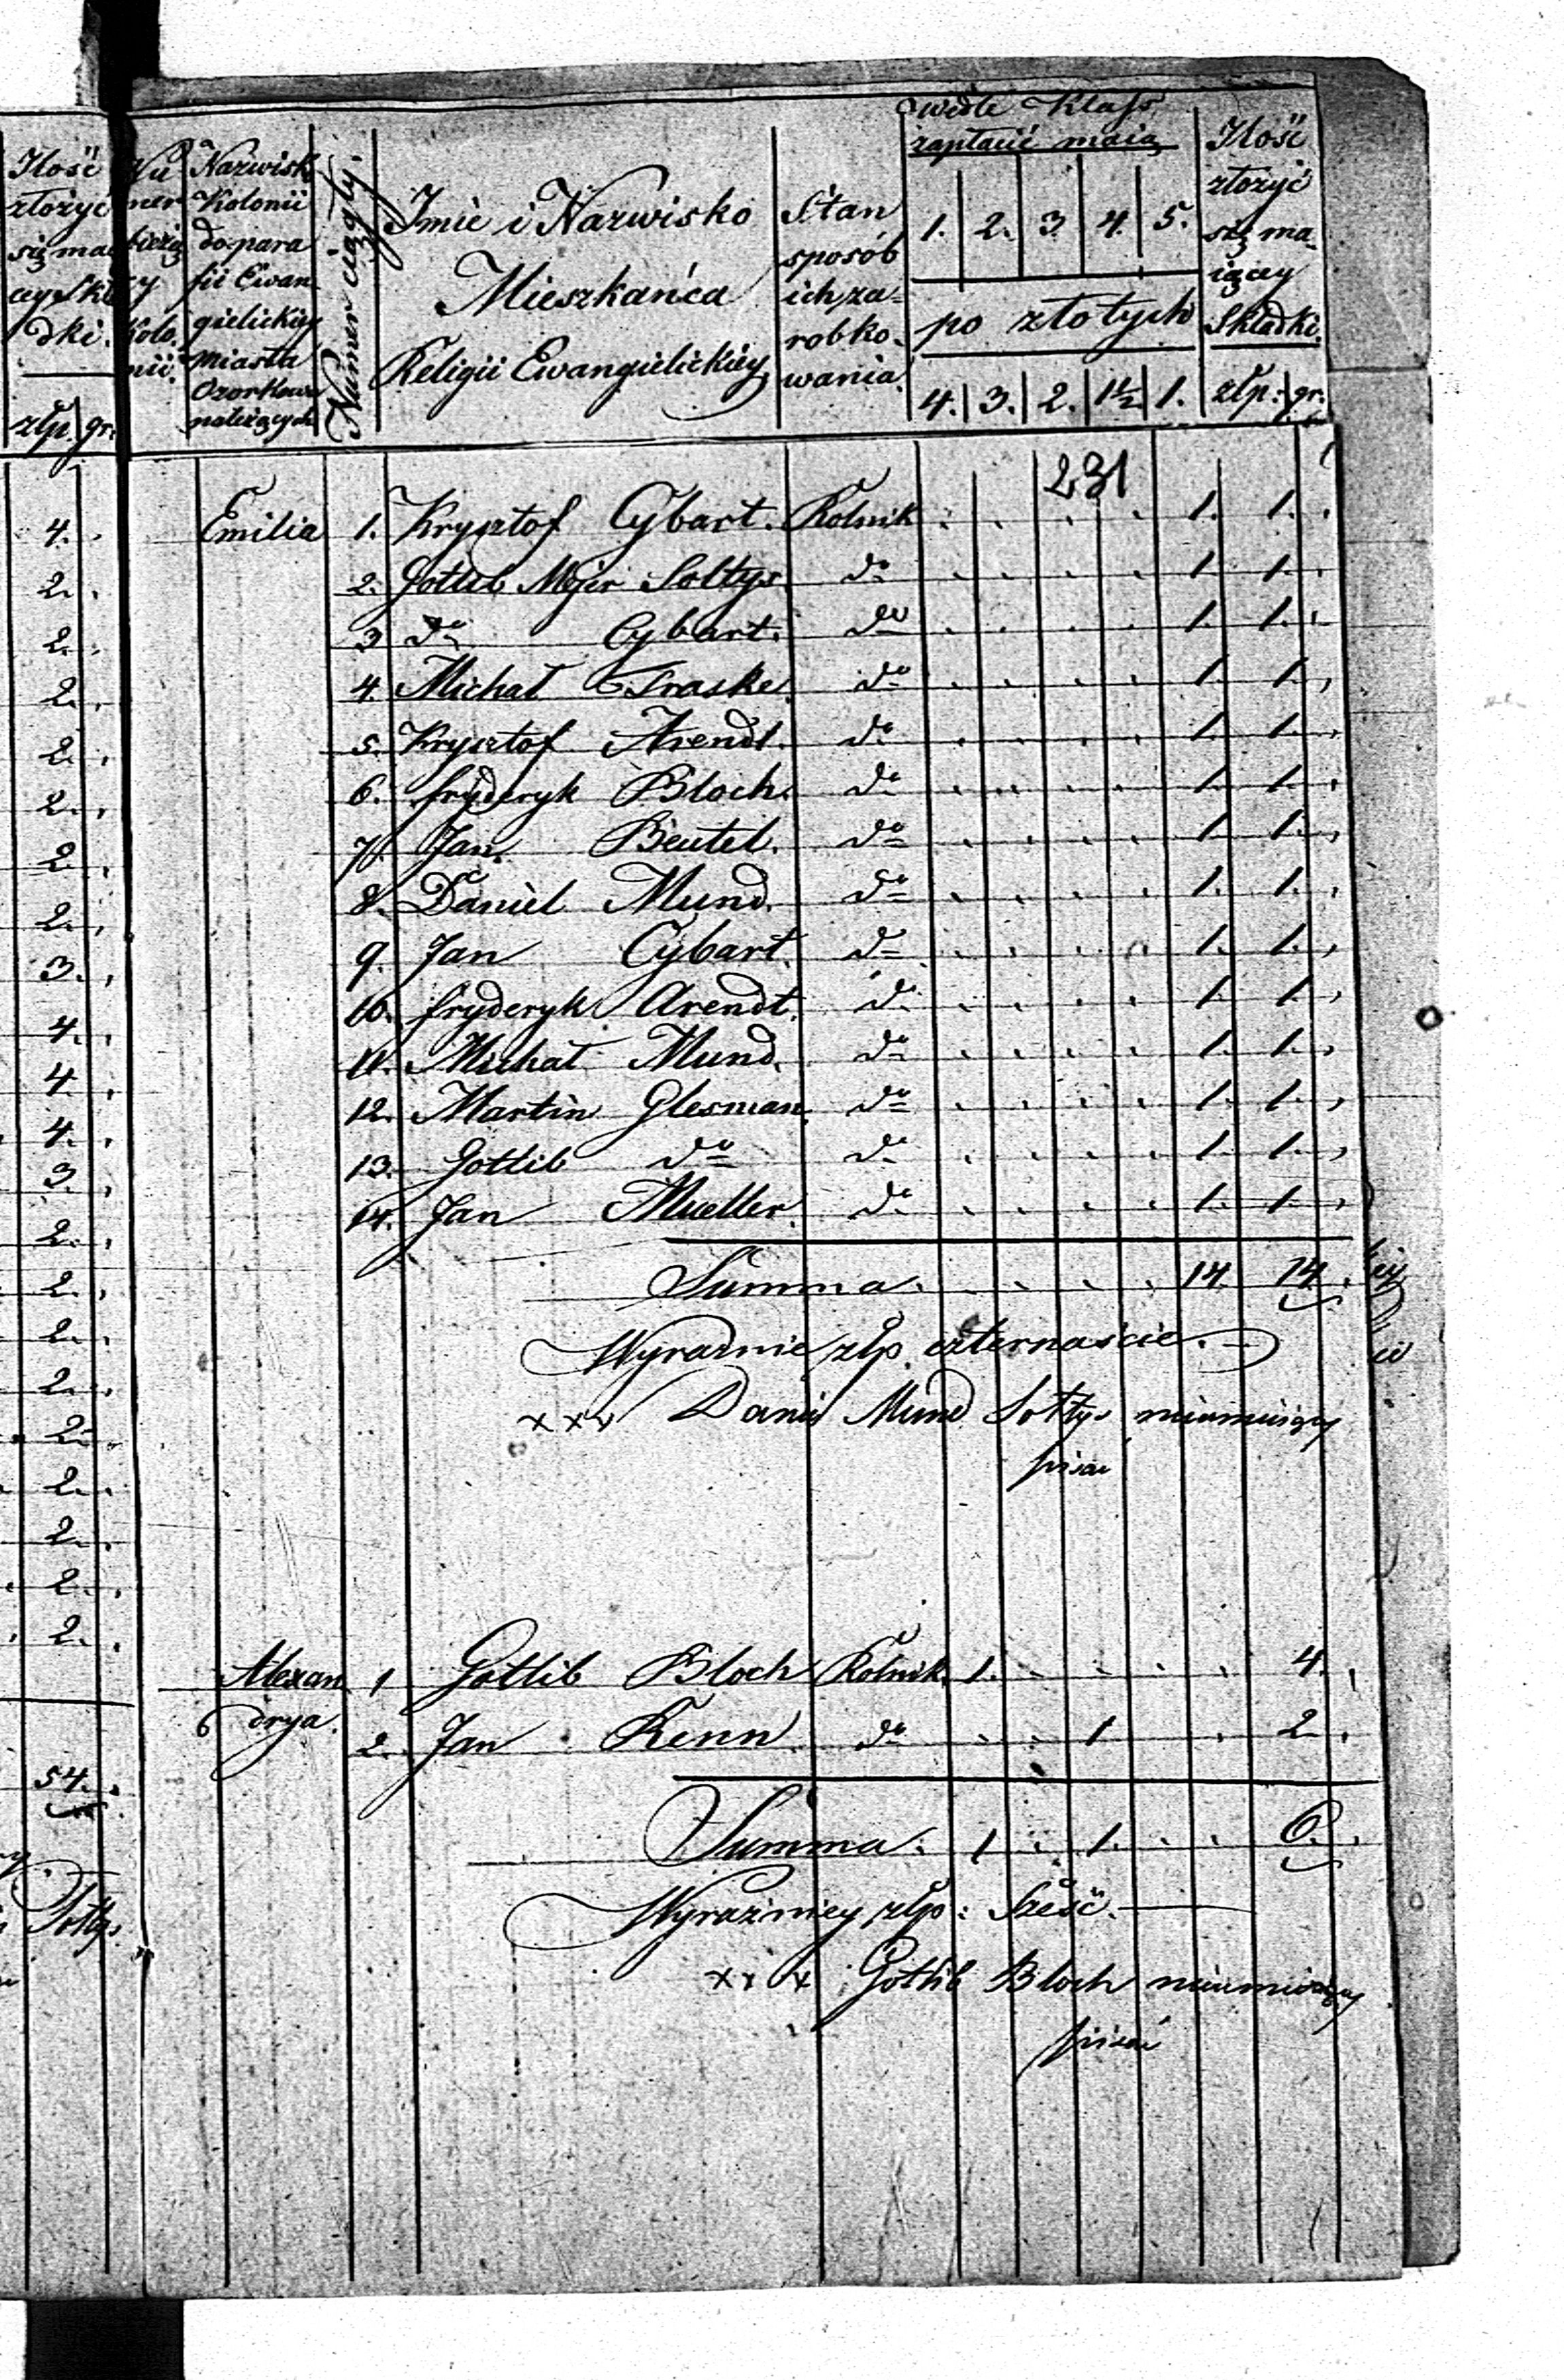 Ilość
złożyć
się ma
dki.
złp. gr.
4.
2.
2.
2.
2.
2.
2.
2.
3.
4.
4.
4.
3.
2.
2.
2.
2.
2.
2.
2.
2.
2.
54.
Sołtys
Nazwisk
Kolonii
do para
fii Ewan
gielickiey
Miasta
Ozorkowa
należących
Numer ciągły.
Imie i Nazwisko
Mieszkańca
Religii Ewangielickiey
Stan
sposób
ich za-
robko-
wania.
wedle Klass
zapłacić maią
1. 2. 3. 4. 5.
po złotych
4. 3. 2. 1½ 1.
Ilość
złożyć
się ma-
iącey
Składki.
złp: gr:
231
Emilia 1. Krysztof Cybart. Rolnik 1. 1.
2. Gotlib Mejer Sołtys do 1. 1.
3 do Cybart. do 1. 1.
4. Michał Fraske do 1. 1.
5. Krysztof Arendt. do 1. 1.
6. fryderyk Bloch. do 1. 1.
7. Jan Beutel. do 1. 1.
8. Daniel Mund. do 1. 1.
9. Jan Cybart. do 1. 1.
10. fryderyk Arendt. do 1. 1.
11. Michał Mund. do 1. 1.
12. Martin Glesman. do 1. 1.
13. Gotlib do do 1. 1.
14. Jan Mueller. do 1. 1.
Summa. 14 14.
Wyraźnie złp. czternaście.
xxx Daniel Mund Sołtys nieumieiący
pisać
Alexan 1 Gotlib Bloch Rolnik 1. 4.
drya. 2. Jan Renn do 1 2.
Summa. 1 1. 6.
Wyraźniey złp: Sześć.
xxx Gotlib Bloch nieumieiący
pisać